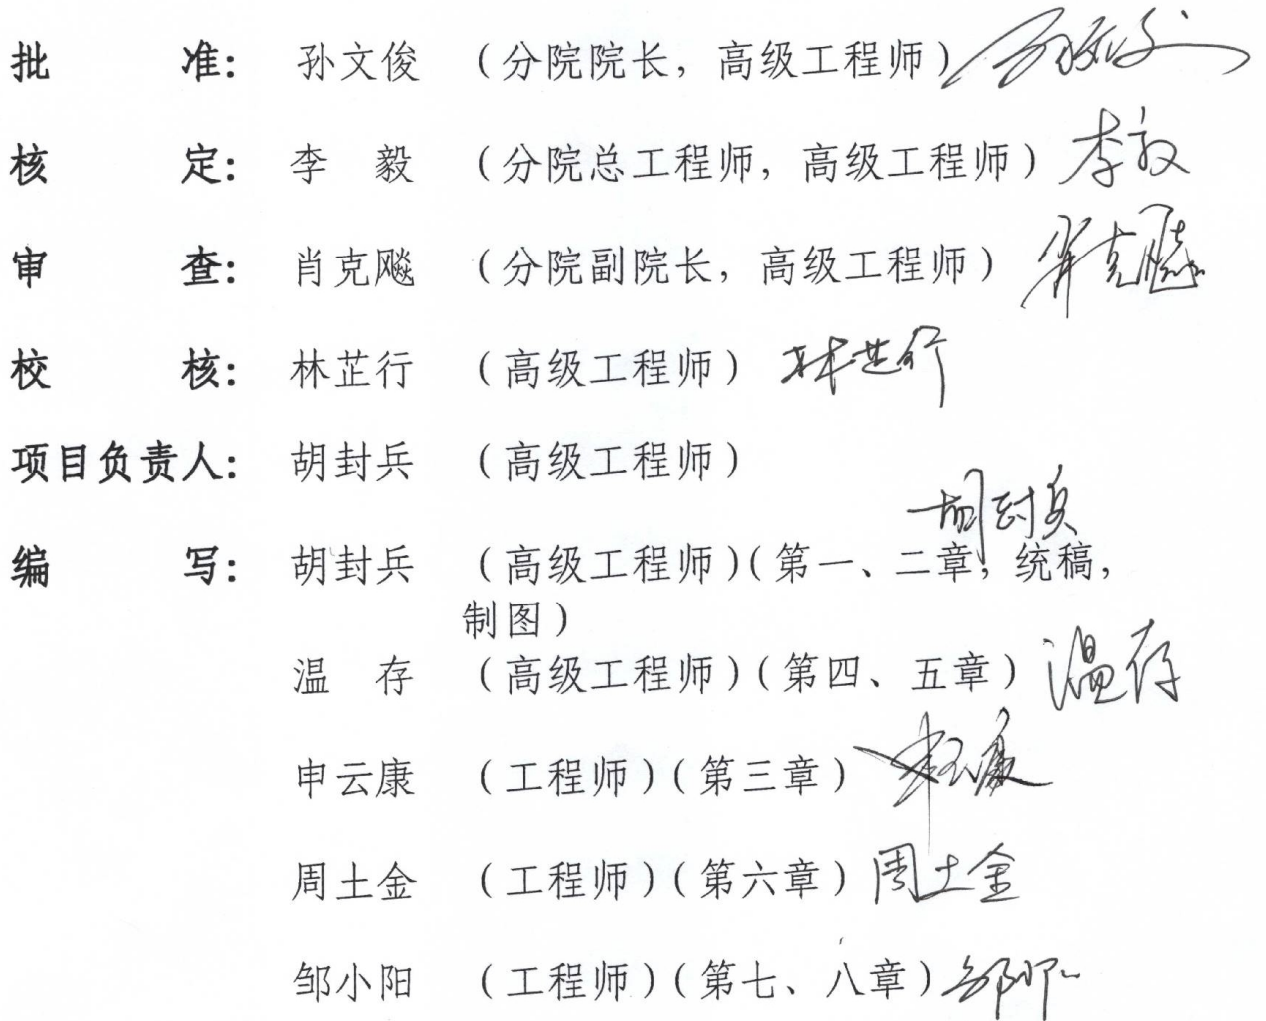 批　　　准：　孙文俊　（分院院长，高级工程师）
核　　　定：　李　毅　（分院总工程师，高级工程师）李毅
审　　　查：　肖克飚　（分院副院长，高级工程师）肖克飚
校　　　核：　林芷行　（高级工程师）林芷行
项目负责人：　胡封兵　（高级工程师）
胡封兵
编　　　写：　胡封兵　（高级工程师）（第一、二章，统稿，
制图）
温　存　（高级工程师）（第四、五章）温存
申云康　（工程师）（第三章）申云康
周土金　（工程师）（第六章）周土金
邹小阳　（工程师）（第七、八章）